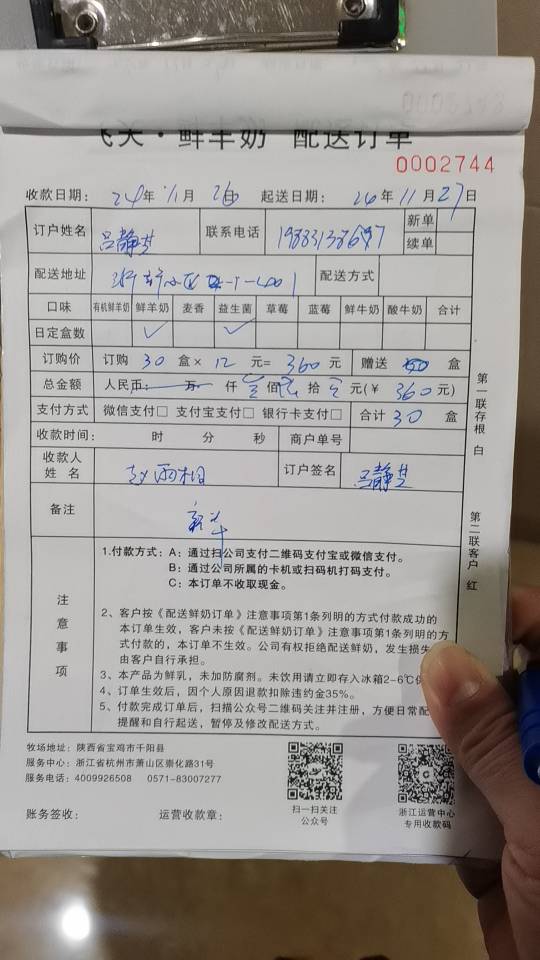 飞关·鲜羊奶 配送订单
0002744
收款日期: 24年 11月 26日 起送日期: 24年 11月 27日
订户姓名 吕静芝 联系电话 新单
续单
配送地址 配送方式
口味 有机鲜羊奶 鲜羊奶 麦香 益生菌 草莓 蓝莓 鲜牛奶 酸牛奶 合计
日定盒数 ✓ ✓
订购价 订购 30 盒× 12 元= 360 元 赠送 盒
总金额 人民币: 万 仟 佰 拾 元(¥ 360元)
支付方式 微信支付□ 支付宝支付□ 银行卡支付□ 合计 30 盒
收款时间: 时 分 秒 商户单号
收款人姓名 赵雨相 订户签名 吕静芝
备注
第一联存根 白
第二联客户 红
注意事项
1.付款方式: A: 通过扫公司支付二维码支付宝或微信支付。
B: 通过公司所属的卡机或扫码机打码支付。
C: 本订单不收取现金。
2、客户按《配送鲜奶订单》注意事项第1条列明的方式付款成功的
本订单生效,客户未按《配送鲜奶订单》注意事项第1条列明的方
式付款的,本订单不生效。公司有权拒绝配送鲜奶,发生损失
由客户自行承担。
3、本产品为鲜乳,未加防腐剂。未饮用请立即存入冰箱2-6℃保
4、订单生效后,因个人原因退款扣除违约金35%。
5、付款完成订单后,扫描公众号二维码关注并注册,方便日常配
提醒和自行起送,暂停及修改配送方式。
牧场地址: 陕西省宝鸡市千阳县
服务中心: 浙江省杭州市萧山区崇化路31号
服务电话: 4009926508 0571-83007277
扫一扫关注
公众号
浙江运营中心
专用收款码
账务签收: 运营收款章: